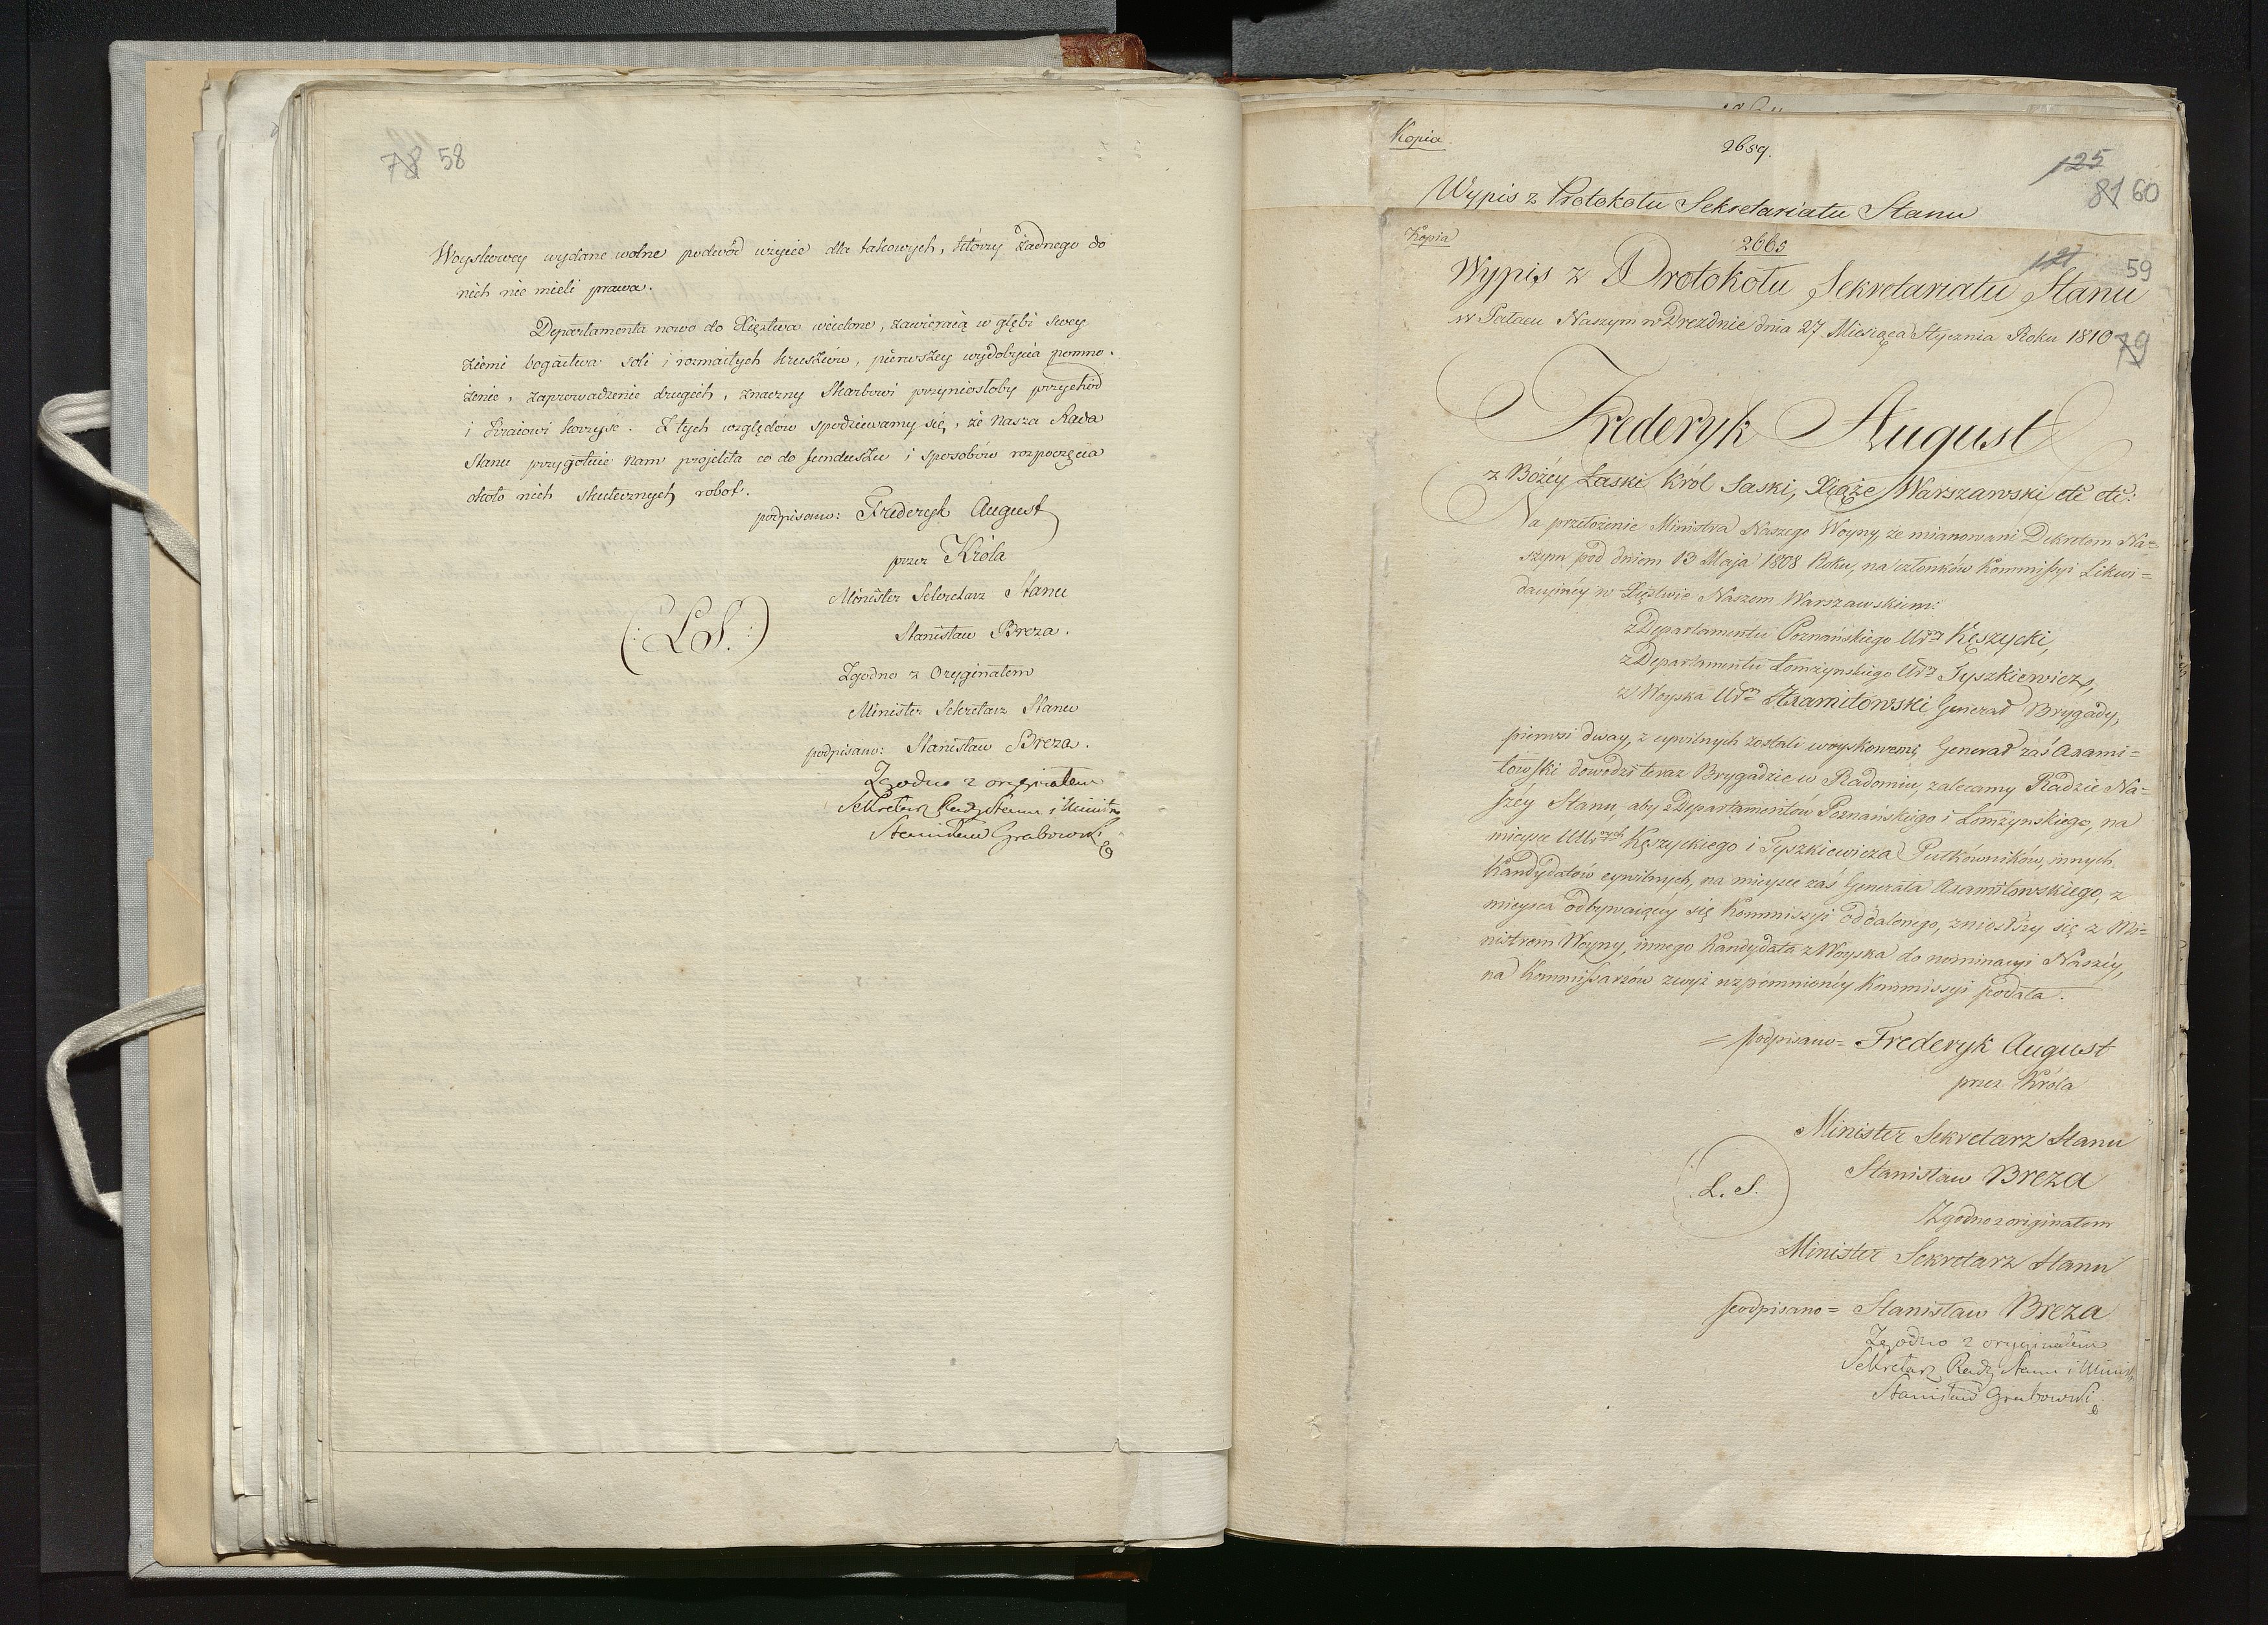 78 58
Woyskowey wydane wolne podwód użycie dla takowych, którzy żadnego do
nich nie mieli prawa.
Departamenta nowo do Xięztwa wcielone, zawieraią w głębi swey
ziemi bogactwa soli i rozmaitych kruszców, pierwszey wydobycia pomno-
żenie, zaprowadzenie drugich, znaczny Skarbowi przyniosłoby przychód
i Kraiowi korzyść. Z tych względów spodziewamy się, że Nasza Rada
Stanu przygotuie Nam projekta co do funduszu i sposobów rozpoczęcia
około nich skutecznych robot.
podpisano: Frideryk August
przez Króla
Minister Sekretarz Stanu
Stanisław Breza.
(:L.S.:)
Zgodno z Oryginałem
Minister Sekretarz Stanu
podpisano: Stanisław Breza.
Zgodno z oryginałem
Sekretarz Rady Stanu i Ministr
Stanisław Grabowski
Kopia
2659.
125
81 60
Wypis z Protokołu Sekretariatu Stanu
Kopia
2665
127 59
Wypis z Protokołu Sekretariatu Stanu
w Pałacu Naszym w Dreznie dnia 27 Miesiąca Stycznia Roku 1810
79
Frederyk August
z Bożéy Łaski Król Saski, Xiąże Warszawski etc etc:
Na przełożenie Ministra Naszego Woyny, że mianowani Dekretem Na=
szym pod dniem 13 Maja 1808 Roku, na członków Kommissyi Likwi=
dacyinéy w Xięstwie Naszem Warszawskiem:
z Departamentu Poznańskiego Ur. Kęszycki,
z Departamentu Łomżynskiego Ur. Tyszkiewicz,
z Woyska Ur. Axamitowski Generał Brygady,
pierwsi dway, z cywilnych zostali woyskowemi, Generał zaś Axami=
towski dowodzi teraz Brygadzie w Radomiu, zalecamy Radzie Na=
széy Stanu, aby z Departamentów Poznańskiego i Łomżynskiego, na
mieysce UUr. Kęszyckiego i Tyszkiewicza Pułkowników, innych
Kandydatów cywilnych, na mieysce zaś Generała Axamitowskiego, z
mieysca odbywaiącéy się Kommissyi oddalonego, zniosłszy się z Mi=
nistrem Woyny, innego Kandydata z Woyska do nominacyi Naszéy,
na Kommissarzów zwyż wzpomnionéy Kommissyi podała.
= podpisano = Frederyk August
przez Króla
Minister Sekretarz Stanu
Stanisław Breza
L. S.
Zgodno z originałem
Minister Sekretarz Stanu
podpisano = Stanisław Breza
Zgodno z oryginałem
Sekretarz Rady Stanu i Minist
Stanisław Grabowski